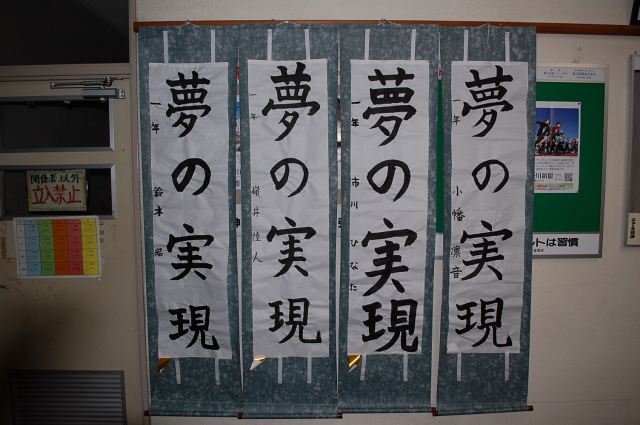 関係者以外
立入禁止
夢の実現
一年
鈴木
夢の実現
一年
嶺井 陸人
夢の実現
一年
市川 ひなた
夢の実現
一年
小幡 凛音
トは習慣